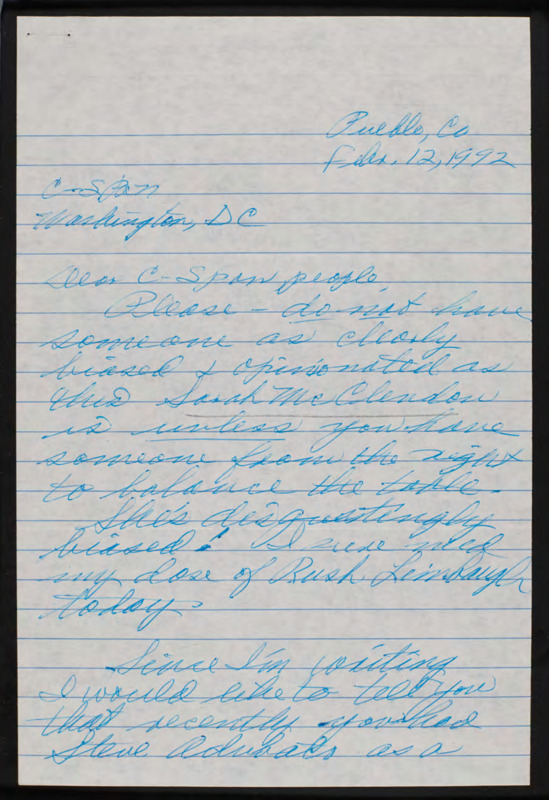 Pueblo, Co
Febr. 12, 1992
C-Span
Washington, DC
Dear C-Span people,
Please - do not have
someone as clearly
biased & opinionated as
this Sarah McClendon
is unless you have
someone from the right
to balance the table.
She's disgustingly
biased! I sure need
my dose of Rush Limbaugh
today.
Since I'm writing
I would like to tell you
that recently you had
Steve as a